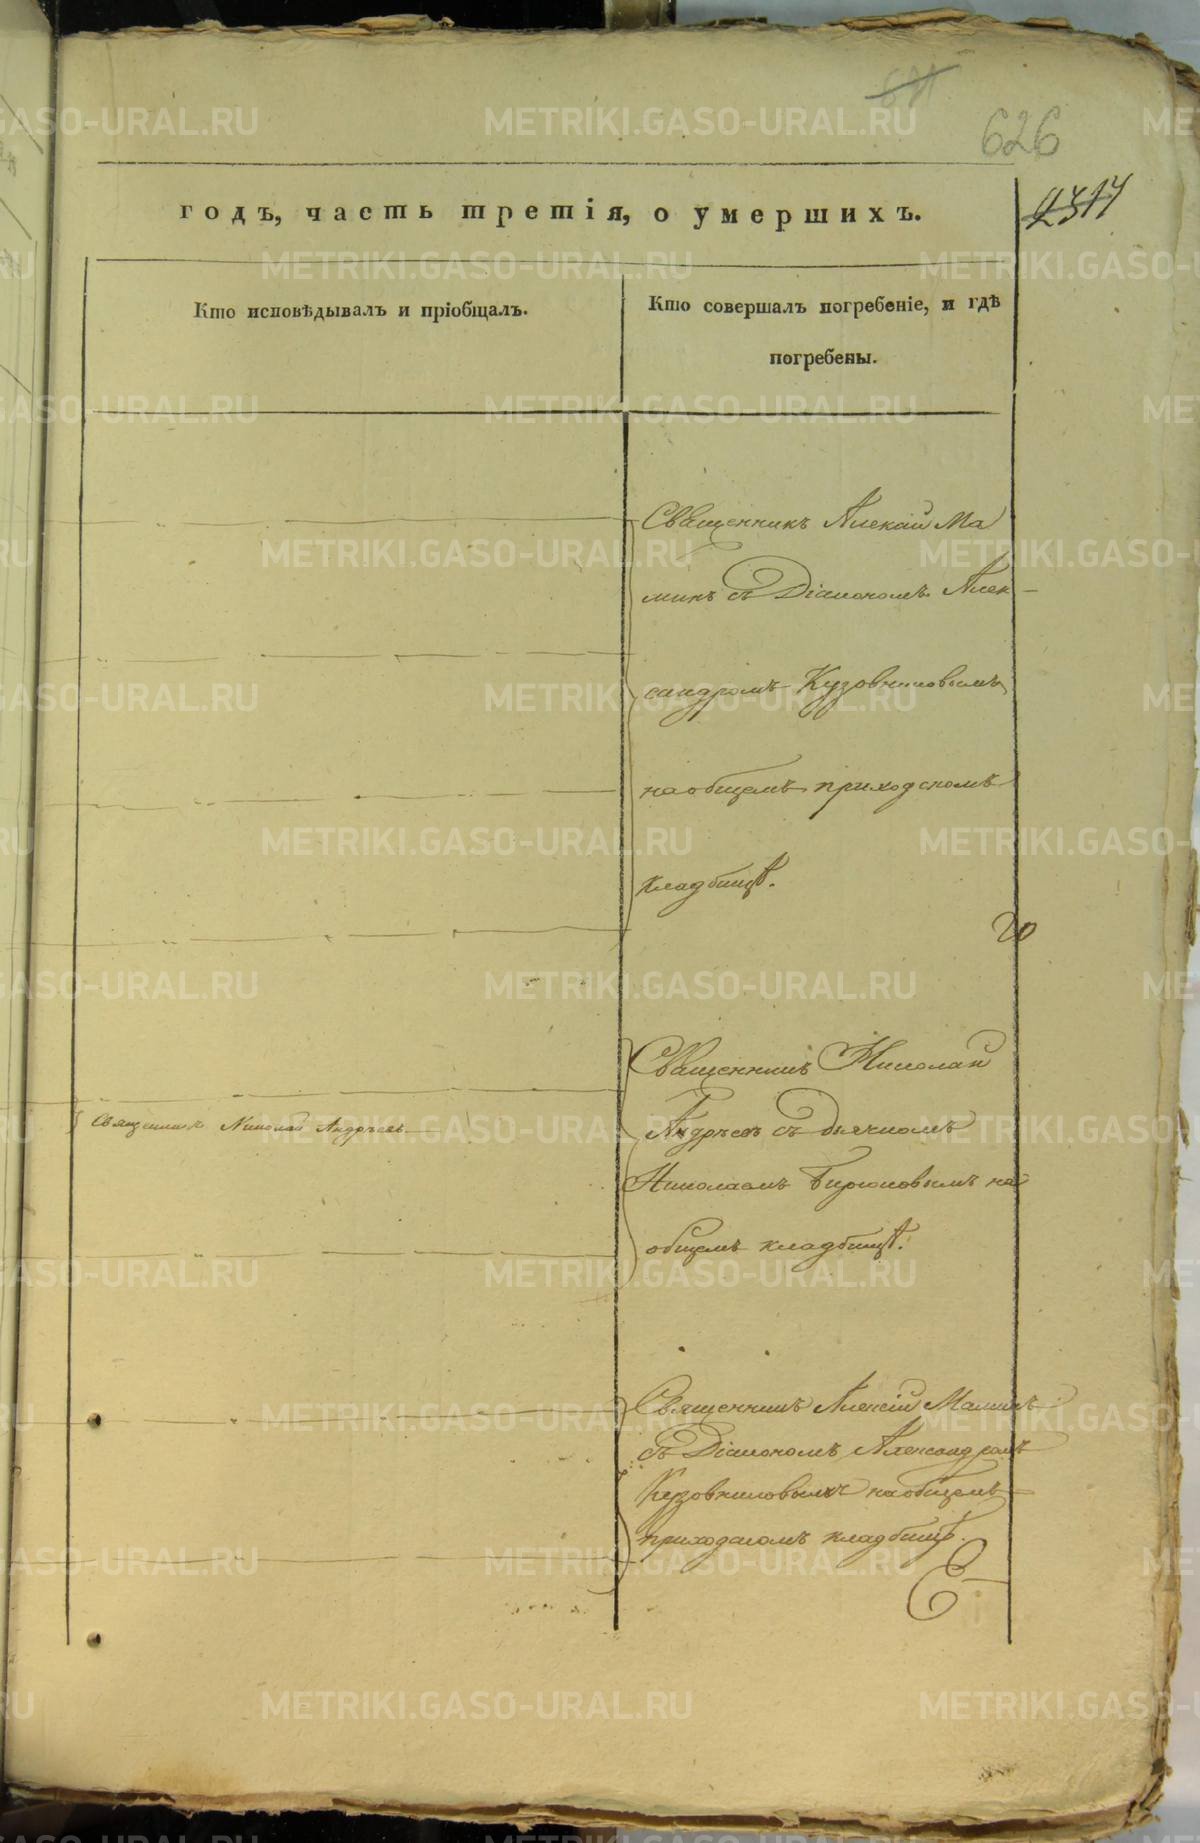 626
2317
годъ, часть третія, о умершихъ.
Кто исповѣдывалъ и пріобщалъ.
Кто совершалъ погребеніе, и гдѣ
погребены.
Священникъ Алексій Ма
минъ съ Діакономъ Алек-
сандромъ Кузовниковымъ
на общемъ приходскомъ
кладбищѣ.
20
Священникъ Николай Андрѣевъ
Священникъ Николай
Андрѣевъ съ дьячкомъ
Николаемъ Бирюковымъ на
общемъ кладбищѣ.
Священникъ Алексій Маминъ
съ Діакономъ Александромъ
Кузовниковымъ на общемъ
приходскомъ кладбищѣ.
METRIKI.GASO-URAL.RU